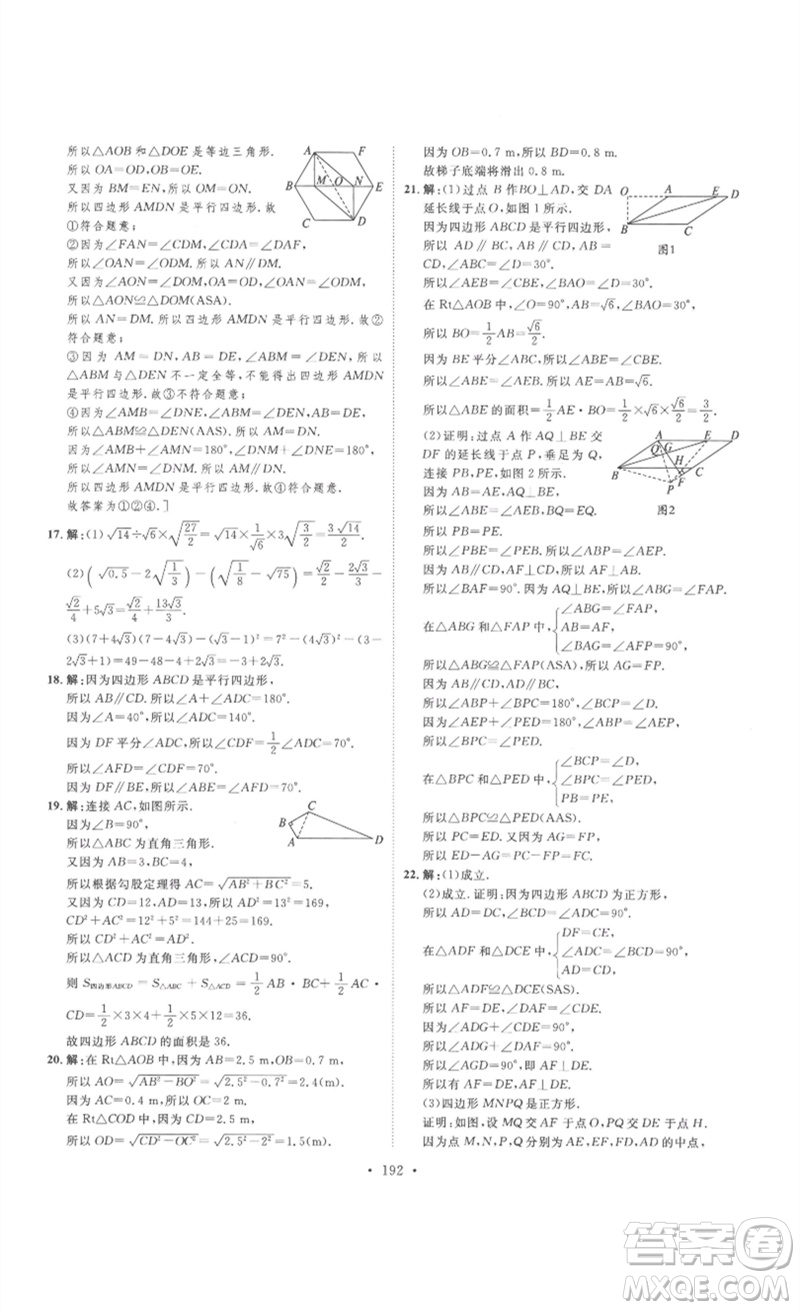 所以△AOB 和△DOE 是等边三角形.
所以 OA=OD,OB=OE.
又因为 BM=EN,所以 OM=ON.
所以四边形 AMDN 是平行四边形.故
①符合题意;
②因为∠FAN=∠CDM,∠CDA=∠DAF,
所以∠OAN=∠ODM.所以 AN∥DM.
又因为∠AON=∠DOM,OA=OD,
所以△AON≌△DOM(ASA).
所以 AN=DM.所以四边形 AMDN 是平行四边形.故②
符合题意;
③因为 AM=DN,AB=DE,∠ABM=∠DEN,所以
△ABM与△DEN 不一定全等,不能得出四边形 AMDN
是平行四边形.故③不符合题意;
④因为∠AMB=∠DNE,∠ABM=∠DEN,AB=DE,
所以△ABM≌△DEN(AAS).所以 AM=DN.
因为∠AMB+∠AMN=180°,∠DNM+∠DNE=180°,
所以∠AMN=∠DNM.所以 AM∥DN.
所以四边形 AMDN 是平行四边形.故④符合题意.
故答案为①②④.]
17. 解:(1)√14÷√6×√(27/2)=√14×1/√6×3√(3/2)=3√14/2.
(2)(√0.5-2√(1/3))-(√(1/8)-√75)=√2/2-2√3/3-
√2/4+5√3=√2/4+13√3/3.
(3)(7+4√3)(7-4√3)-(√3-1)²=7²-(4√3)²-(3-
2√3+1)=49-48-3+2√3-1=2√3-3.
18. 解:因为四边形 ABCD 是平行四边形,
所以 AB∥CD.所以∠A+∠ADC=180°.
因为∠A=40°,所以∠ADC=140°.
因为 DF 平分∠ADC,所以∠CDF=1/2∠ADC=70°.
所以∠AFD=∠CDF=70°.
因为 DF∥BE,所以∠ABE=∠AFD=70°.
19. 解:连接 AC,如图所示.
因为∠B=90°,
所以△ABC 为直角三角形.
又因为 AB=3,BC=4,
所以根据勾股定理得 AC=√(AB²+BC²)=5.
又因为 CD=12,AD=13,
所以 AD²=13²=169,
CD²+AC²=12²+5²=144+25=169.
所以 CD²+AC²=AD².
所以△ACD 为直角三角形,∠ACD=90°.
则 S四边形ABCD=S△ABC+S△ACD=1/2 AB·BC+1/2 AC·
CD=1/2×3×4+1/2×5×12=36.
故四边形 ABCD 的面积是 36.
20. 解:在 Rt△AOB 中,AB=2.5 m,OB=0.7 m,
所以 AO=√(AB²-BO²)=√(2.5²-0.7²)=2.4(m).
因为 AC=0.4 m,所以 OC=2 m.
在 Rt△COD 中,CD=2.5 m,
所以 OD=√(CD²-OC²)=√(2.5²-2²)=1.5(m).
因为 OB=0.7 m,所以 BD=0.8 m.
故梯子底端将滑出 0.8 m.
21. 解:(1)过点 B 作BO⊥AD,交 DA
延长线于点 O,如图 1 所示.
因为四边形 ABCD 是平行四边形,
所以 AD∥BC,AB∥CD,AB=
CD,∠ABC=∠D=30°.
所以∠AEB=∠CBE,∠BAO=∠ABC=30°.
在 Rt△AOB 中,∠O=90°,∠BAO=30°,AB=√6,
所以 BO=1/2 AB=√6/2.
因为 BE 平分∠ABC,所以∠ABE=∠CBE.
所以∠ABE=∠AEB.所以 AE=AB=√6.
所以△ABE 的面积=1/2 AE·BO=1/2×√6×√6/2=3/2.
(2)证明:过点 A 作 AQ⊥BE 交
DF 的延长线于点 P,垂足为 Q,
连接 PB,PE,如图 2 所示.
因为 AB=AE,AQ⊥BE,
所以∠ABE=∠AEB,BQ=EQ.
所以 PB=PE.
所以∠PBE=∠PEB.所以∠ABP=∠AEP.
因为 AB∥CD,AF⊥CD,所以 AF⊥AB.
所以∠BAF=90°.因为 AQ⊥BE,所以∠ABG=∠FAP.
在△ABG 和△FAP 中,{∠ABG=∠FAP, AB=AF, ∠BAG=∠AFP=90°,
所以△ABG≌△FAP(ASA).所以 AG=FP.
因为 AB∥CD,AD∥BC,
所以∠ABP+∠BPC=180°,∠BCP=∠D.
因为∠AEP+∠PED=180°,∠ABP=∠AEP,
所以∠BPC=∠PED.
在△BPC 和△PED 中,{∠BCP=∠D, ∠BPC=∠PED, PB=PE,
所以△BPC≌△PED(AAS).
所以 PC=ED.又因为 AG=FP,
所以 ED-AG=PC-AG=PC-FP=FC.
22. 解:(1)成立.
(2)成立.证明:因为四边形 ABCD 为正方形,
所以 AD=DC,∠ADF=∠DCE=90°.
在△ADF 和△DCE 中,{DF=CE, ∠ADF=∠DCE=90°, AD=CD,
所以△ADF≌△DCE(SAS).
所以 AF=DE,∠DAF=∠CDE.
因为∠ADG+∠CDE=90°,
所以∠ADG+∠DAF=90°.
所以∠AGD=90°,即 AF⊥DE.
所以有 AF=DE,AF⊥DE.
(3)四边形 MNPQ 是正方形.
证明:如图,设 MQ 交 AF 于点 O,PQ 交 DE 于点 H.
因为点 M,N,P,Q 分别为 AE,EF,FD,AD 的中点,
A F
B M O N E
C D
C
B
A D
O A E D
B C
图1
A E D
Q G
H
B C
F
P
图2
· 192 ·
答案卷
MXQE.COM